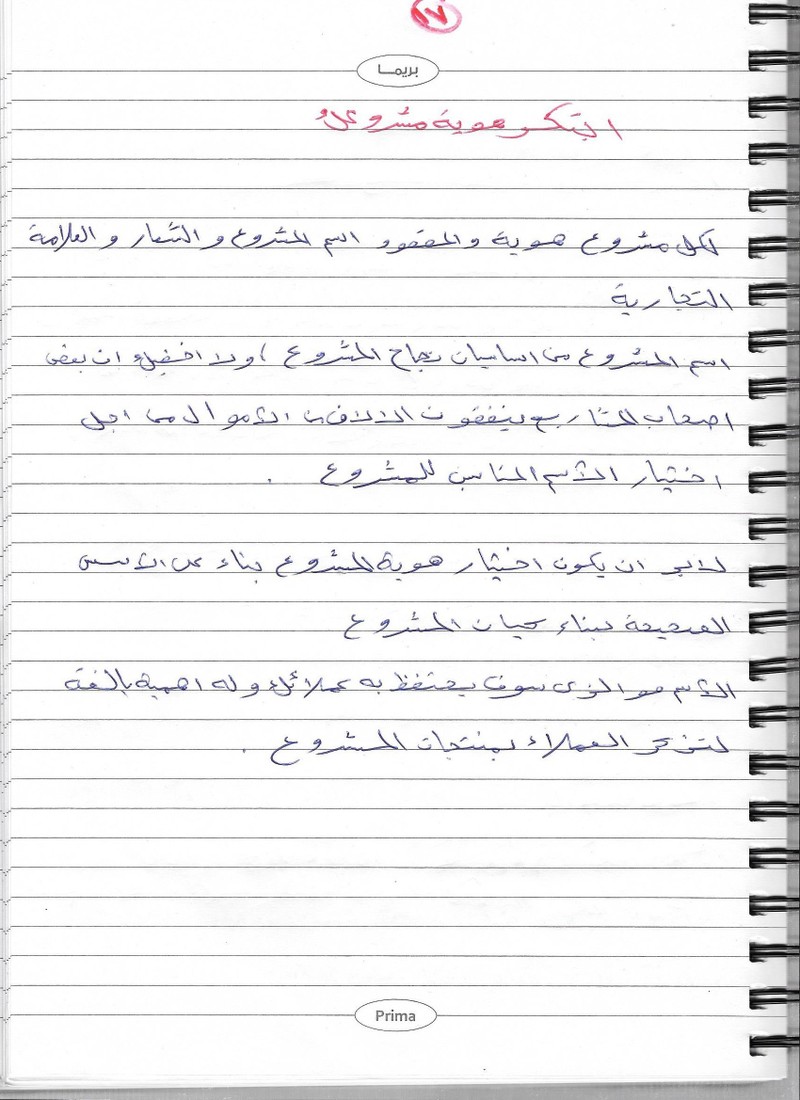 ١٧
بريمـا
ابتكر هوية مشروعك
لكل مشروع هوية والمقصود اسم المشروع و الشعار و العلامة
التجارية
اسم المشروع من اساسيات نجاح المشروع ، ولا اخفيك ان بعض
اصحاب المشاريع ينفقون الالاف من الأموال من اجل
اختيار الأسم المناسب للمشروع .
لابد ان يكون اختيار هوية المشروع بناء على الأسس
الصحيحة لبناء كيان المشروع
الأسم هو الذى سوف يحتفظ به عملائك وله اهمية بالغة
لتذكر العملاء بمنتجات المشروع .
Prima